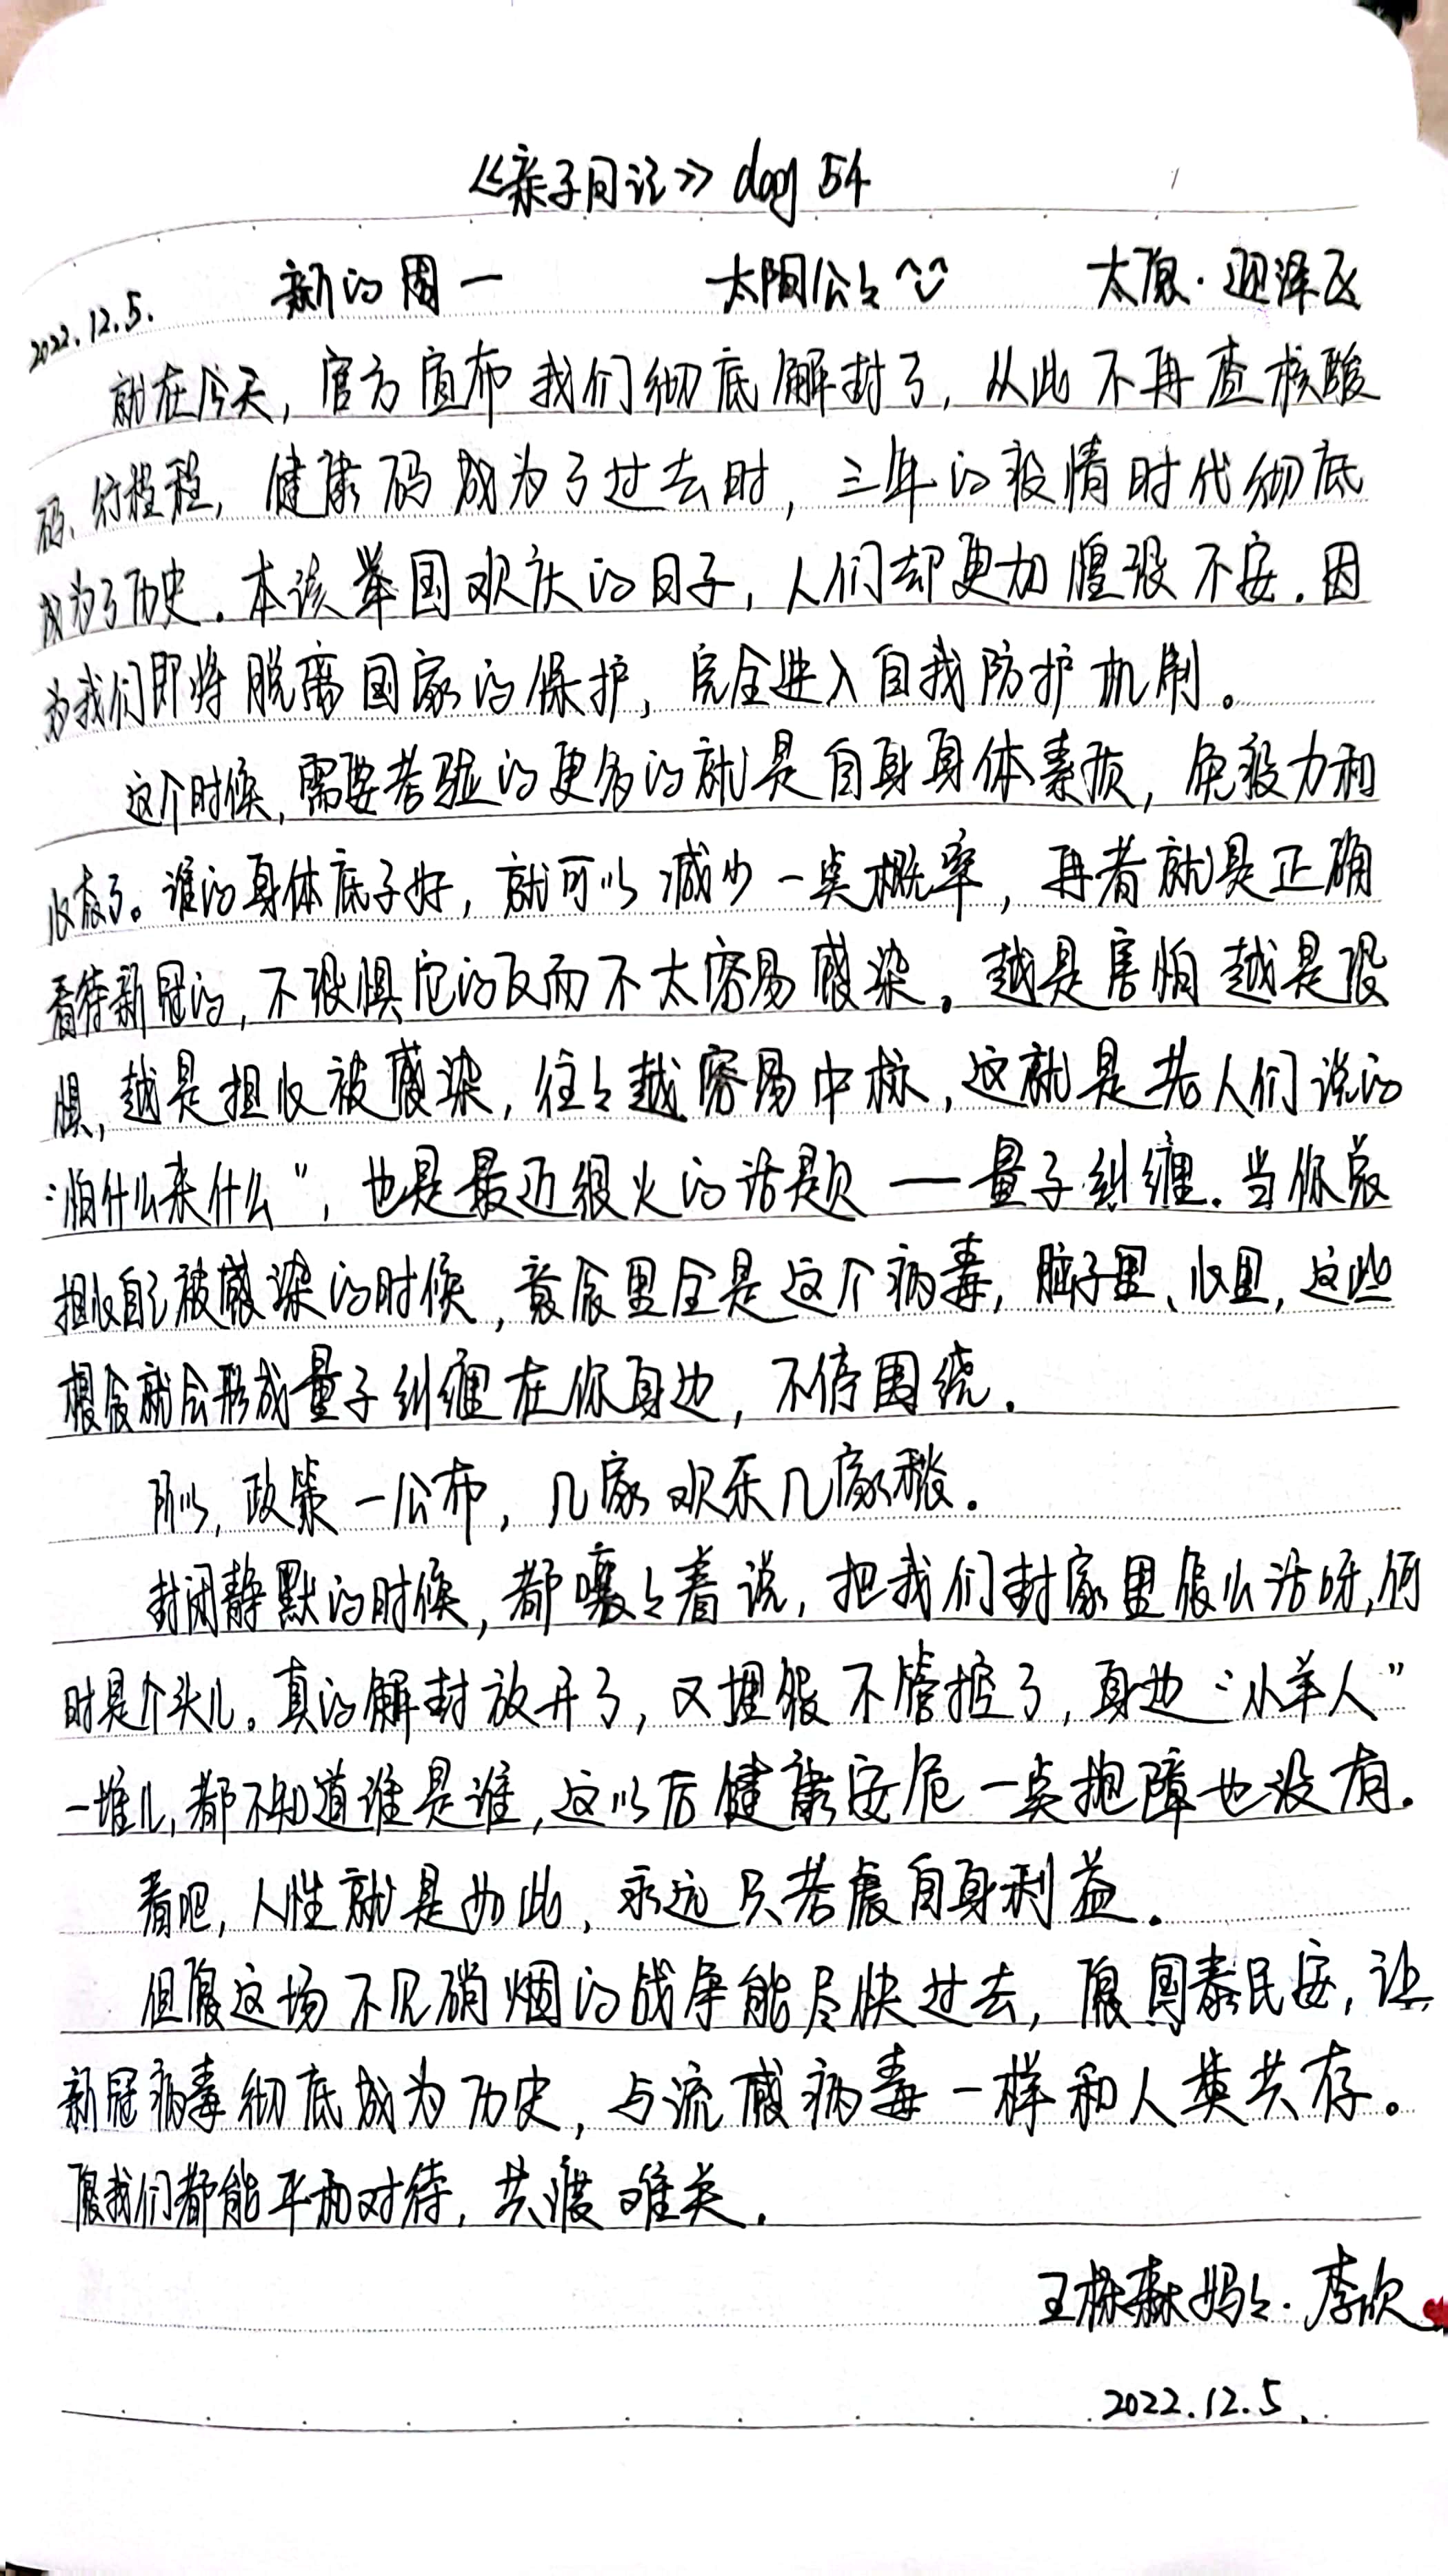 《亲子日记》day 54
2022.12.5. 新的周一 太阳公公 太原·迎泽区
就在今天，官方宣布我们彻底解封了，从此不再查核酸
码、行程程，健康码成为了过去时，三年的疫情时代彻底
成为了历史。本该举国欢庆的日子，人们却更加惶恐不安。因
为我们即将脱离国家的保护，完全进入自我防护机制。
这个时候，需要考验的更多的就是自身身体素质，免疫力和
心态了。谁的身体底子好，就可以减少一点概率，再者就是正确
看待新冠的，不恐惧它的反而不太容易感染。越是害怕越是恐
惧，越是担心被感染，往往越容易中标，这就是老人们说的
“怕什么来什么”，也是最近很火的话题——量子纠缠。当你总
担心自己被感染的时候，意念里全是这个病毒，脑子里、心里，这些
想念就会形成量子纠缠在你身边，不停围绕。
所以，政策一公布，几家欢乐几家愁。
封闭静默的时候，都嚷嚷着说，把我们封家里怎么活呀，何
时是个头儿。真的解封放开了，又埋怨不管控了，身边“小羊人”
一堆儿，都不知道谁是谁，这以后健康安危一点保障也没有。
看吧，人性就是如此，永远只考虑自身利益。
但愿这场不见硝烟的战争能尽快过去，愿国泰民安，让
新冠病毒彻底成为历史，与流感病毒一样和人类共存。
愿我们都能平和对待，共渡难关。
王栋森妈妈·李欣
2022.12.5.